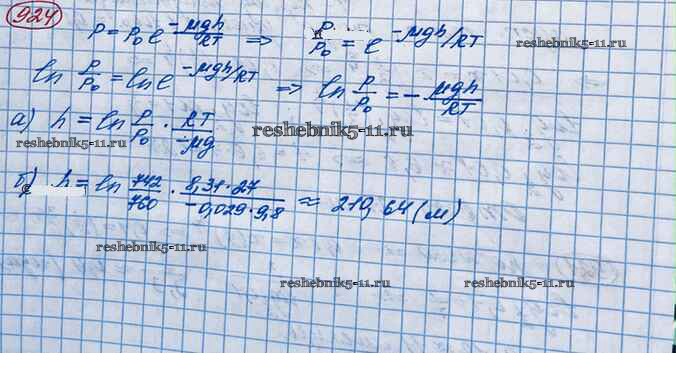 924
P = P₀e^(-μgh/RT) ⇒ P/P₀ = e^(-μgh/RT)
ln P/P₀ = ln e^(-μgh/RT) ⇒ ln P/P₀ = - μgh/RT
а) h = ln P/P₀ · RT/-μg
reshebnik5-11.ru
б) h = ln 742/760 · 8,31·27/-0,029·9,8 ≈ 210,64 (м)
reshebnik5-11.ru
reshebnik5-11.ru reshebnik5-11.ru